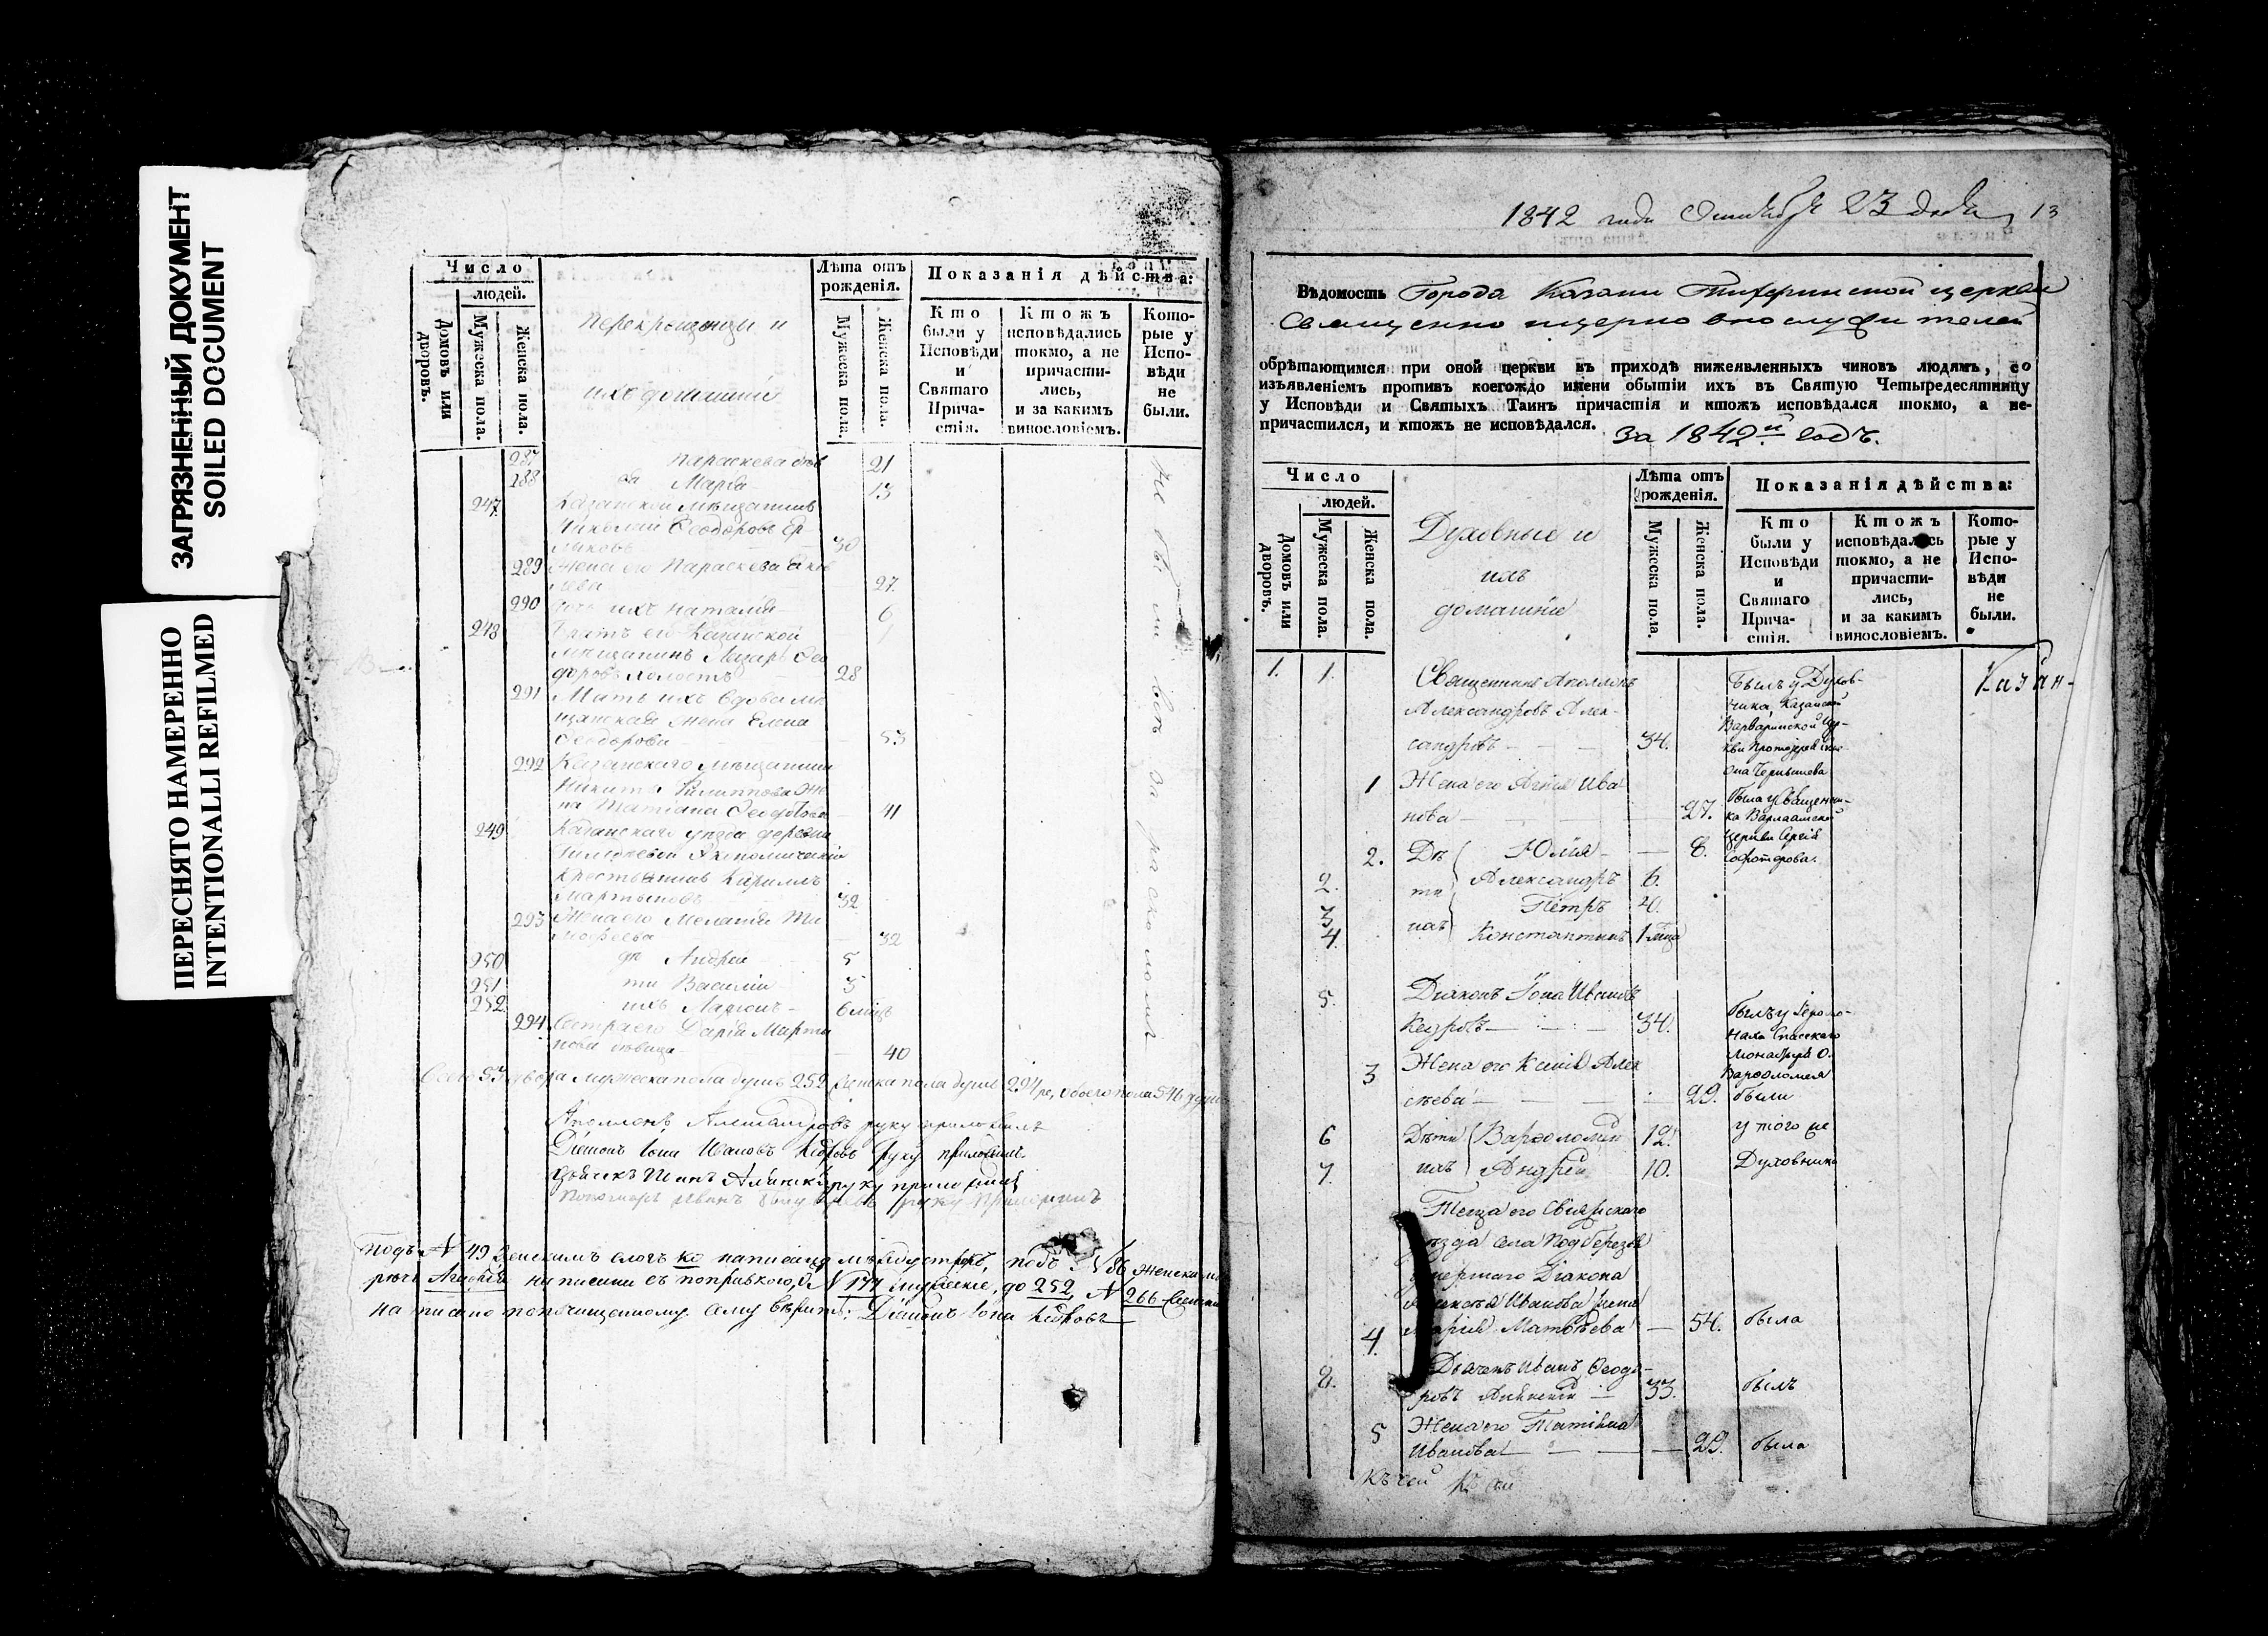 ЗАГРЯЗНЕННЫЙ ДОКУМЕНТ
SOILED DOCUMENT
ПЕРЕСНЯТО НАМЕРЕННО
INTENTIONALLI REFILMED
Число
людей.
Домовъ или дворовъ.
Мужеска пола.
Женска пола.
перекрещенцы и
ихъ домашніе
Лѣта отъ рожденія.
Мужеска пола.
Женска пола.
Показанія дѣйства:
Кто были у Исповѣди и Святаго Прича-стія.
Ктожъ исповѣдались токмо, а не причасти-лись, и за какимъ винословіемъ.
Кото-рые у Испо-вѣди не были.
287 Параскева 21
288 Марѳа 13
247 Казанской мѣщанинъ
Николай Ѳеодоровъ
30
289 Жена его Параскева
27
290 ихъ Наталія 6
248 Братъ его Казанской
мѣщанинъ Лазарь Ѳео
доровъ холостъ 28
291 Мать ихъ вдова мѣ
щанская жена Елена
Ѳеодорова 53
292 Казанскаго мѣщанина
Никиты Филиппова же
на Татіана 41
249 Казанскаго уѣзда деревни
крестьянинъ Кириллъ
Мартыновъ 32
293 Жена его Меланія Ти
моѳеева 32
250 дѣ Андрей 5
251 ти Василій 3
252 ихъ 6 мцъ
294 Сестра его Дарія Марты
нова дѣвица 40
не были по расколу
Всего 53 двора мужеска пола душъ 252 женска пола душъ 294ре, обоего пола 546 душъ
Аполлонъ Александровъ руку приложилъ
Діаконъ Іона Ивановъ Кедровъ руку приложилъ
руку приложилъ
Пономарь Иванъ руку приложилъ
Подъ № 49 женскимъ слогъ ко написанъ между строкъ, подъ № 86 женскимъ
написани съ поправкою, № 177 мужеске, до 252, № 266
написано по почищенному сему вѣрить: Діаконъ Іона Кедровъ
1842 года Октября 23 дня 13
Вѣдомость Города Казани Тихвинской церкви
Священно и церковнослужителей
обрѣтающимся при оной церкви въ приходѣ нижеявленныхъ чиновъ людямъ, со
изъявленіемъ противъ коегождо имени обытіи ихъ въ Святую Четыредесятницу
у Исповѣди и Святыхъ Таинъ причастія и ктожъ исповѣдался токмо, а не-
причастился, и ктожъ не исповѣдался. За 1842й годъ.
Число
людей.
Домовъ или дворовъ.
Мужеска пола.
Женска пола.
Духовные и
ихъ
домашніе
Лѣта отъ рожденія.
Мужеска пола.
Женска пола.
Показанія дѣйства:
Кто были у Исповѣди и Святаго Прича-стія.
Ктожъ исповѣдались токмо, а не причасти-лись, и за какимъ винословіемъ.
Кото-рые у Испо-вѣди не были.
1. 1. Священникъ Аполлонъ
Александровъ Алек-
сандровъ 34.
Былъ у Духов-
ника Казанской
Варваринской Цер-
кви Протоіерея
Казан-
1 Жена его Агнія Ива
нова 27.
была у Священни-
ка Варлаамской
Церкви Сергія
2. Дѣ Юлія 8.
2. ти Александръ 6.
3 Петръ 4.
4. ихъ Константинъ 1 мца
5. Діаконъ Іона Ивановъ
Кедровъ 34.
былъ у Іеромо-
наха Спасскаго
Монастыря О.
Варѳоломея
3 Жена его Ксенія Алек
сѣева 29. были
6 Дѣти Варѳоломей 12. у того же
7. ихъ Андрей 10. Духовника
Теща его Свіяжскаго
уѣзда села Подберезья
умершаго Діакона
Алексѣя Иванова жена
4. Марія Матвѣева 54. была
8. Дьячекъ Иванъ Ѳеодо-
ровъ 33. былъ
5 Жена его Татіана
Иванова 29. была
Къ сей